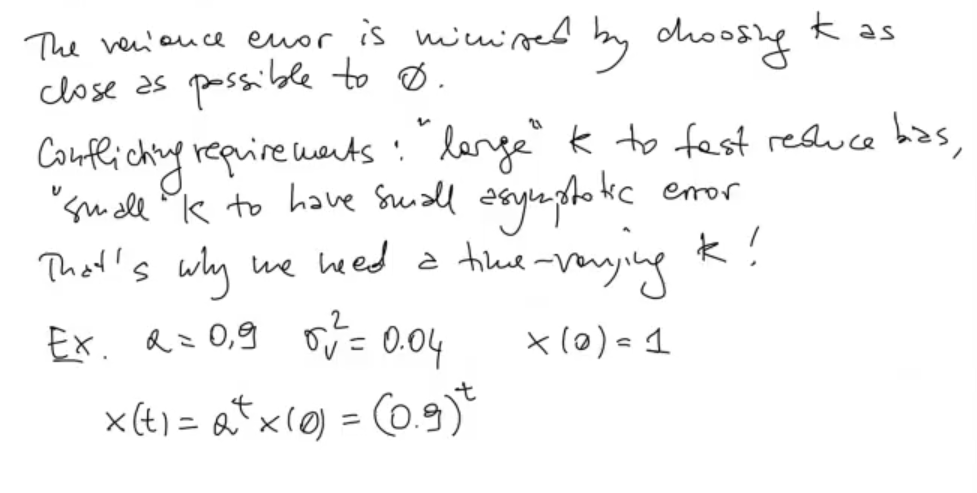 The variance error is minimized by choosing k as
close as possible to 0.
Conflicting requirements : "large" k to fast reduce bias,
"small" k to have small asymptotic error
That's why we need a time-varying k !
Ex. a = 0,9 σᵥ² = 0.04 x(0) = 1
x(t) = aᵗ x(0) = (0.9)ᵗ